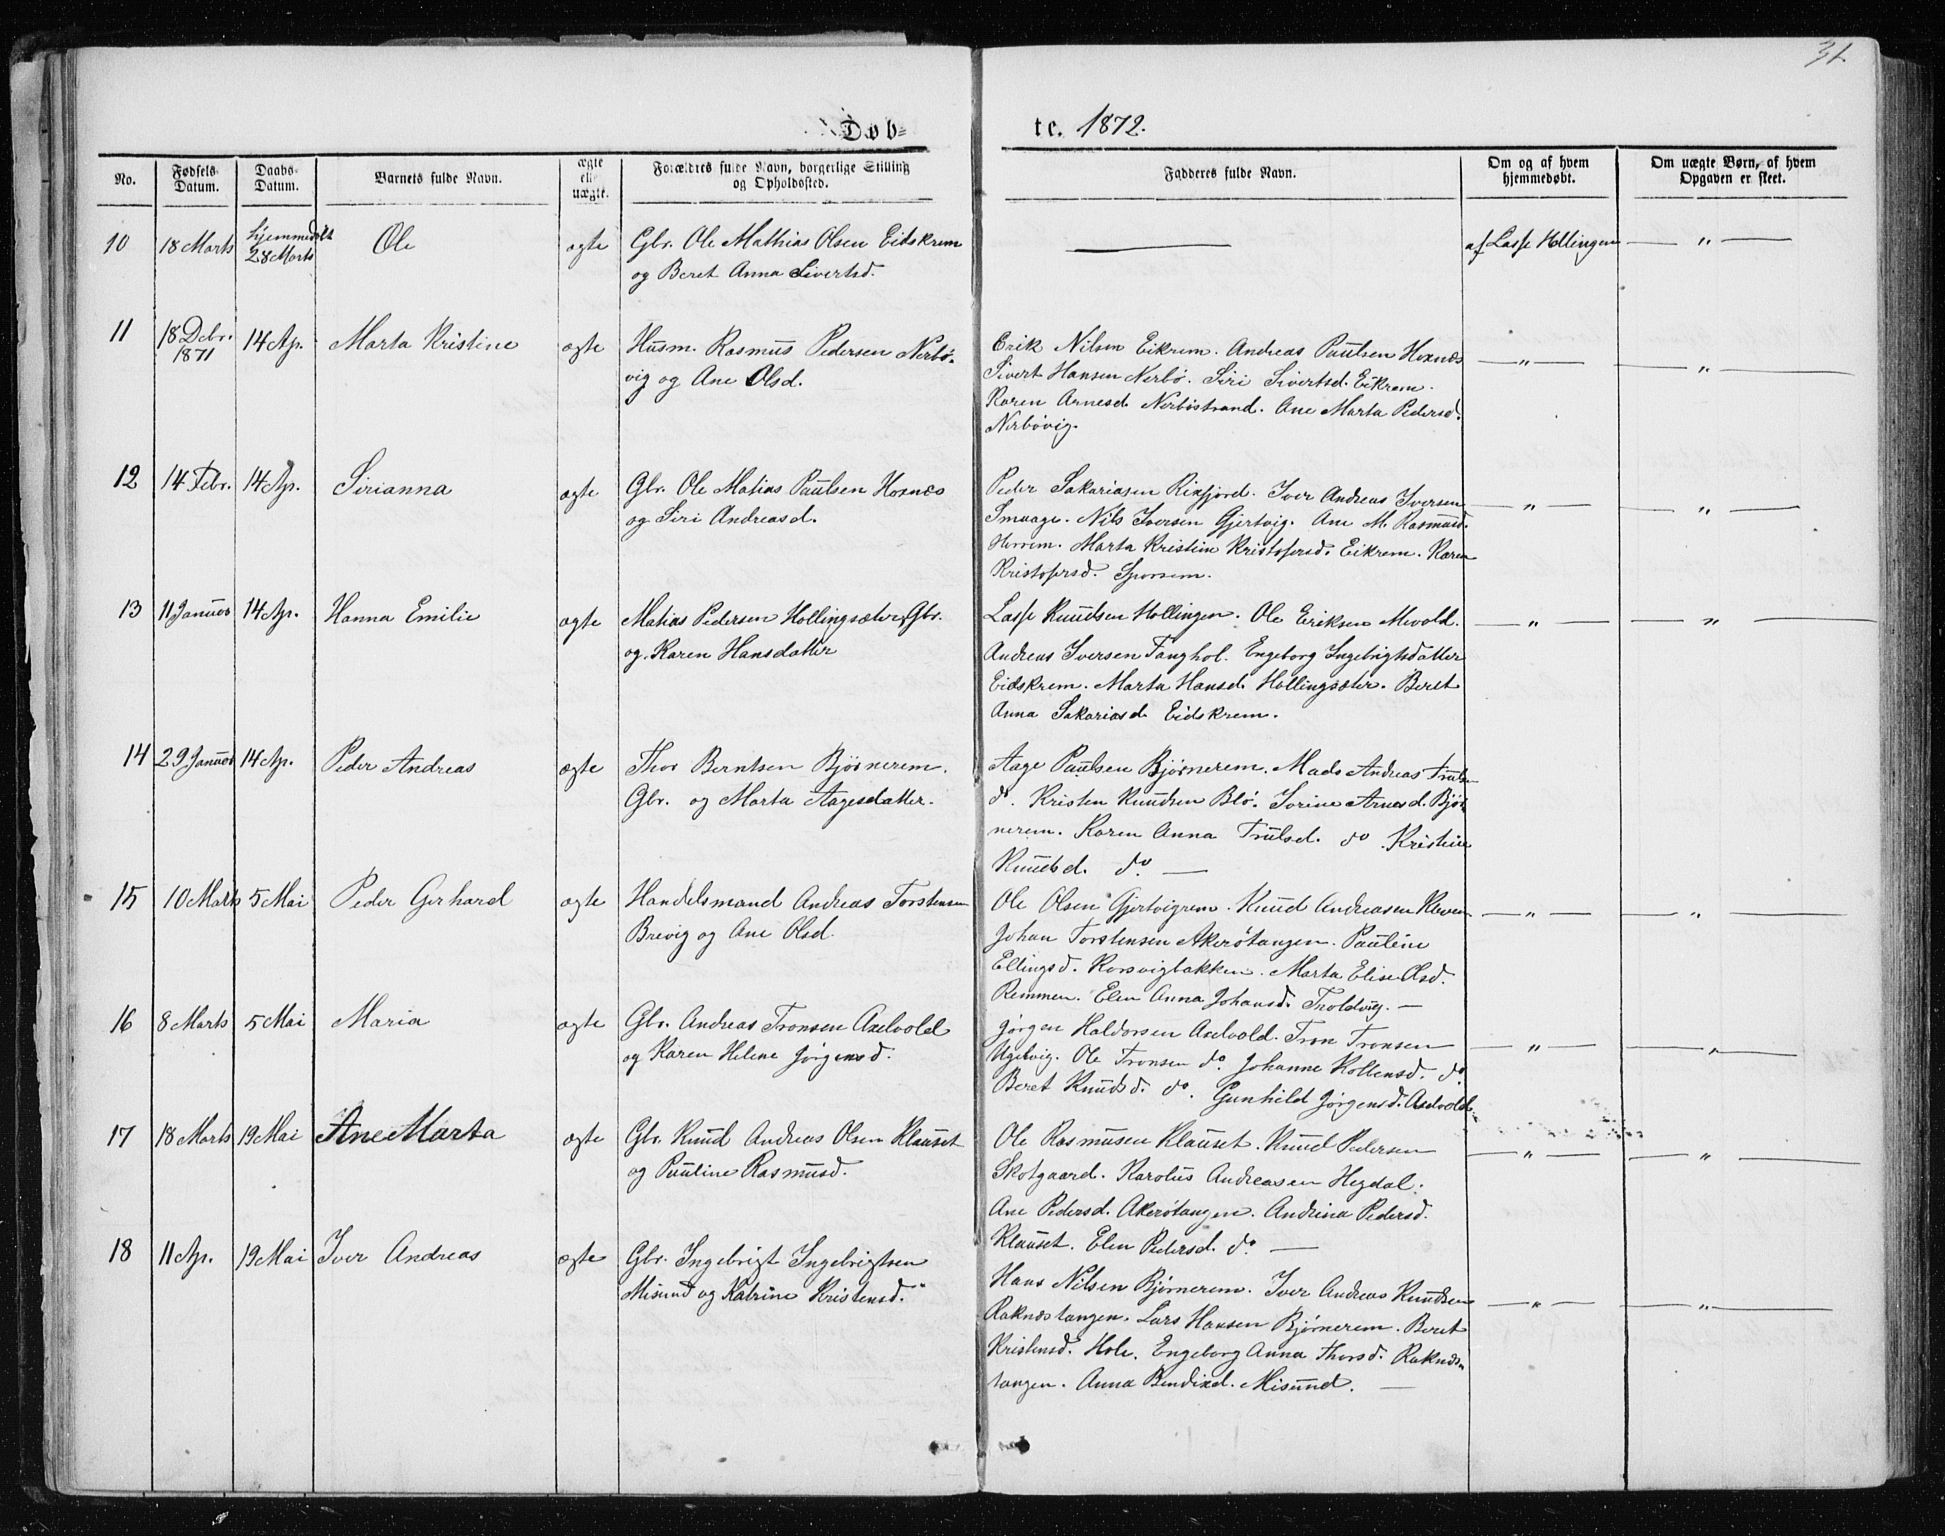 31.
Døb-
te. 1872.
No.
Fødsels-
Datum.
Daabs-
Datum.
Barnets fulde Navn.
ægte
ell.
uægte.
Forældres fulde Navn, borgerlige Stilling
og Opholdssted.
Fadderes fulde Navn.
Om og af hvem
hjemmedøbt.
Om uægte Børn, af hvem
Opgaven er skeet.
10 18 Marts hjemmedøbt
28 Marts Ole ægte Gbr. Ole Mathias Olsen Eidskrem
og Beret Anna Sivertsd.
af Lasse Hollingen — " —
11 18 Debr.
1871 14 Ap. Marta Kristine ægte Husm. Rasmus Pedersen Nerbø-
vig og Ane Olsd.
Erik Nilsen Eikrem. Andreas Paulsen Hoxnæs
Sivert Hansen Nerbø. Siri Sivertsd. Eikrem.
Karen Arnesd. Nerbøstrand. Ane Marta Pedersd.
Nerbøvig.
— " — — " —
12 14 Febr. 14 Ap. Sirianna ægte Gbr. Ole Matias Paulsen Hoxnæs
og Siri Andreasd.
Peder Sakariasen Rixfjord. Iver Andreas Iversen
Smaage. Nils Iversen Gjertvig. Ane M. Rasmusd.
Horrem. Marta Kristine Kristofersd. Eikrem. Karen
Kristofersd. Sporsem.
— " — — " —
13 11 Januar 14 Ap. Hanna Emilie ægte Matias Pedersen Hollingsæter, Gbr.
og Karen Hansdatter
Lasse Knudsen Hollingen. Ole Eriksen Mevold.
Andreas Iversen Tanghol. Engeborg Ingebrigtsdatter
Eidskrem. Marta Hansd. Hollingsæter. Beret
Anna Sakariasd. Eidskrem.
— " — — " —
14 29 Januar 14 Ap. Peder Andreas ægte Thor Berntsen Bjørnerem.
Gbr. og Marta Aagesdatter.
Aage Paulsen Bjørnerem. Mads Andreas Truls.
do. Kristen Knudsen Blø. Sorine Arnesd. Bjør-
nerem. Karen Anna Trulsd. do. Kristine
Knudsd. do. —
15 10 Marts 5 Mai Peder Gerhard ægte Handelsmand Andreas Torstensen
Brevig og Ane Olsd.
Ole Olsen Gjertvigrem. Knud Andreasen Kleven
Johan Torstensen Akerøtangen. Pauline
Ellingsd. Korsvigbakken. Marta Elise Olsd.
Remmen. Elen Anna Johansd. Troldvig. —
— " — — " —
16 8 Marts 5 Mai Maria ægte Gbr. Andreas Tronsen Axelvold
og Karen Helene Jørgensd.
Jørgen Haldorsen Axelvold. Tron Tronsen
Ugelvig. Ole Tronsen do. Johanne Kolbensd. do.
Beret Knudsd. do. Gunhild Jørgensd. Axelvold.
— " — — " —
17 18 Marts 19 Mai Ane Marta ægte Gbr. Knud Andreas Olsen Klauset
og Pauline Rasmusd.
Ole Rasmusen Klauset. Knud Pedersen
Skotgaard. Karolus Andreasen Hegdal.
Ane Pedersd. Akerøtangen. Andrina Pedersd.
Klauset. Elen Pedersd. do. —
— " — — " —
18 11 Ap. 19 Mai Iver Andreas ægte Gbr. Ingebrigt Ingebrigtsen
Misund og Katrine Kristensd.
Hans Nilsen Bjørnerem. Iver Andreas Knudsen
Raknæstangen. Lars Hansen Bjørnerem. Beret
Kristensd. Hole. Engeborg Anna Thorsd. Raknæs-
tangen. Anna Bendixd. Misund. —
— " — — " —